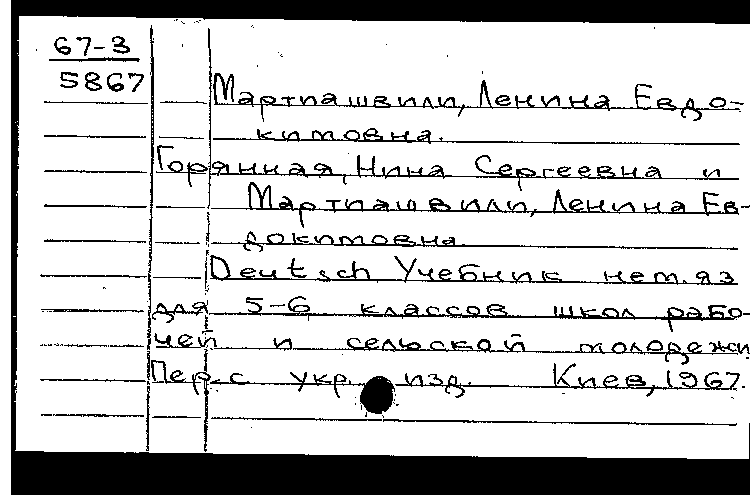 67-3
5867
Мартиашвили, Ленина Евдо-
кимовна.
Горянная, Нина Сергеевна и
Мартиашвили, Ленина Ев-
докимовна.
Deutsch Учебник нем. яз
для 5-6 классов школ рабо-
чей и сельской молодежи
Пер. с укр. изд. Киев, 1967.